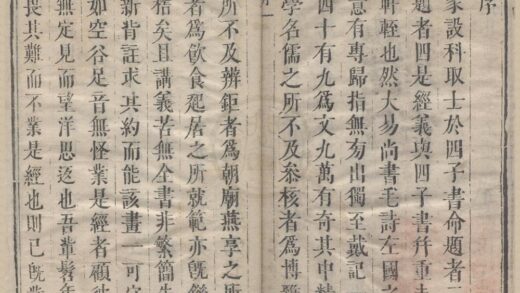 序
家設科取士於四子書命題者三
題者四是經義與四子書幷重夫
軒輊也然大易尚書毛詩左國之
意有專歸指無旁出獨至戴記
四十有九爲文九萬有奇其中精
學名儒之所不及叅核者爲博
所不及辨鉅者爲朝廟燕享之所
者爲飲食起居之所就範亦旣
梏矣且講義苦無全書非繁簡失
新背註求其約而能該畫一可守
如空谷足音無怪業是經者顧
無定見而望洋思返也吾輩髫年
畏其難而不業是經也則已旣業